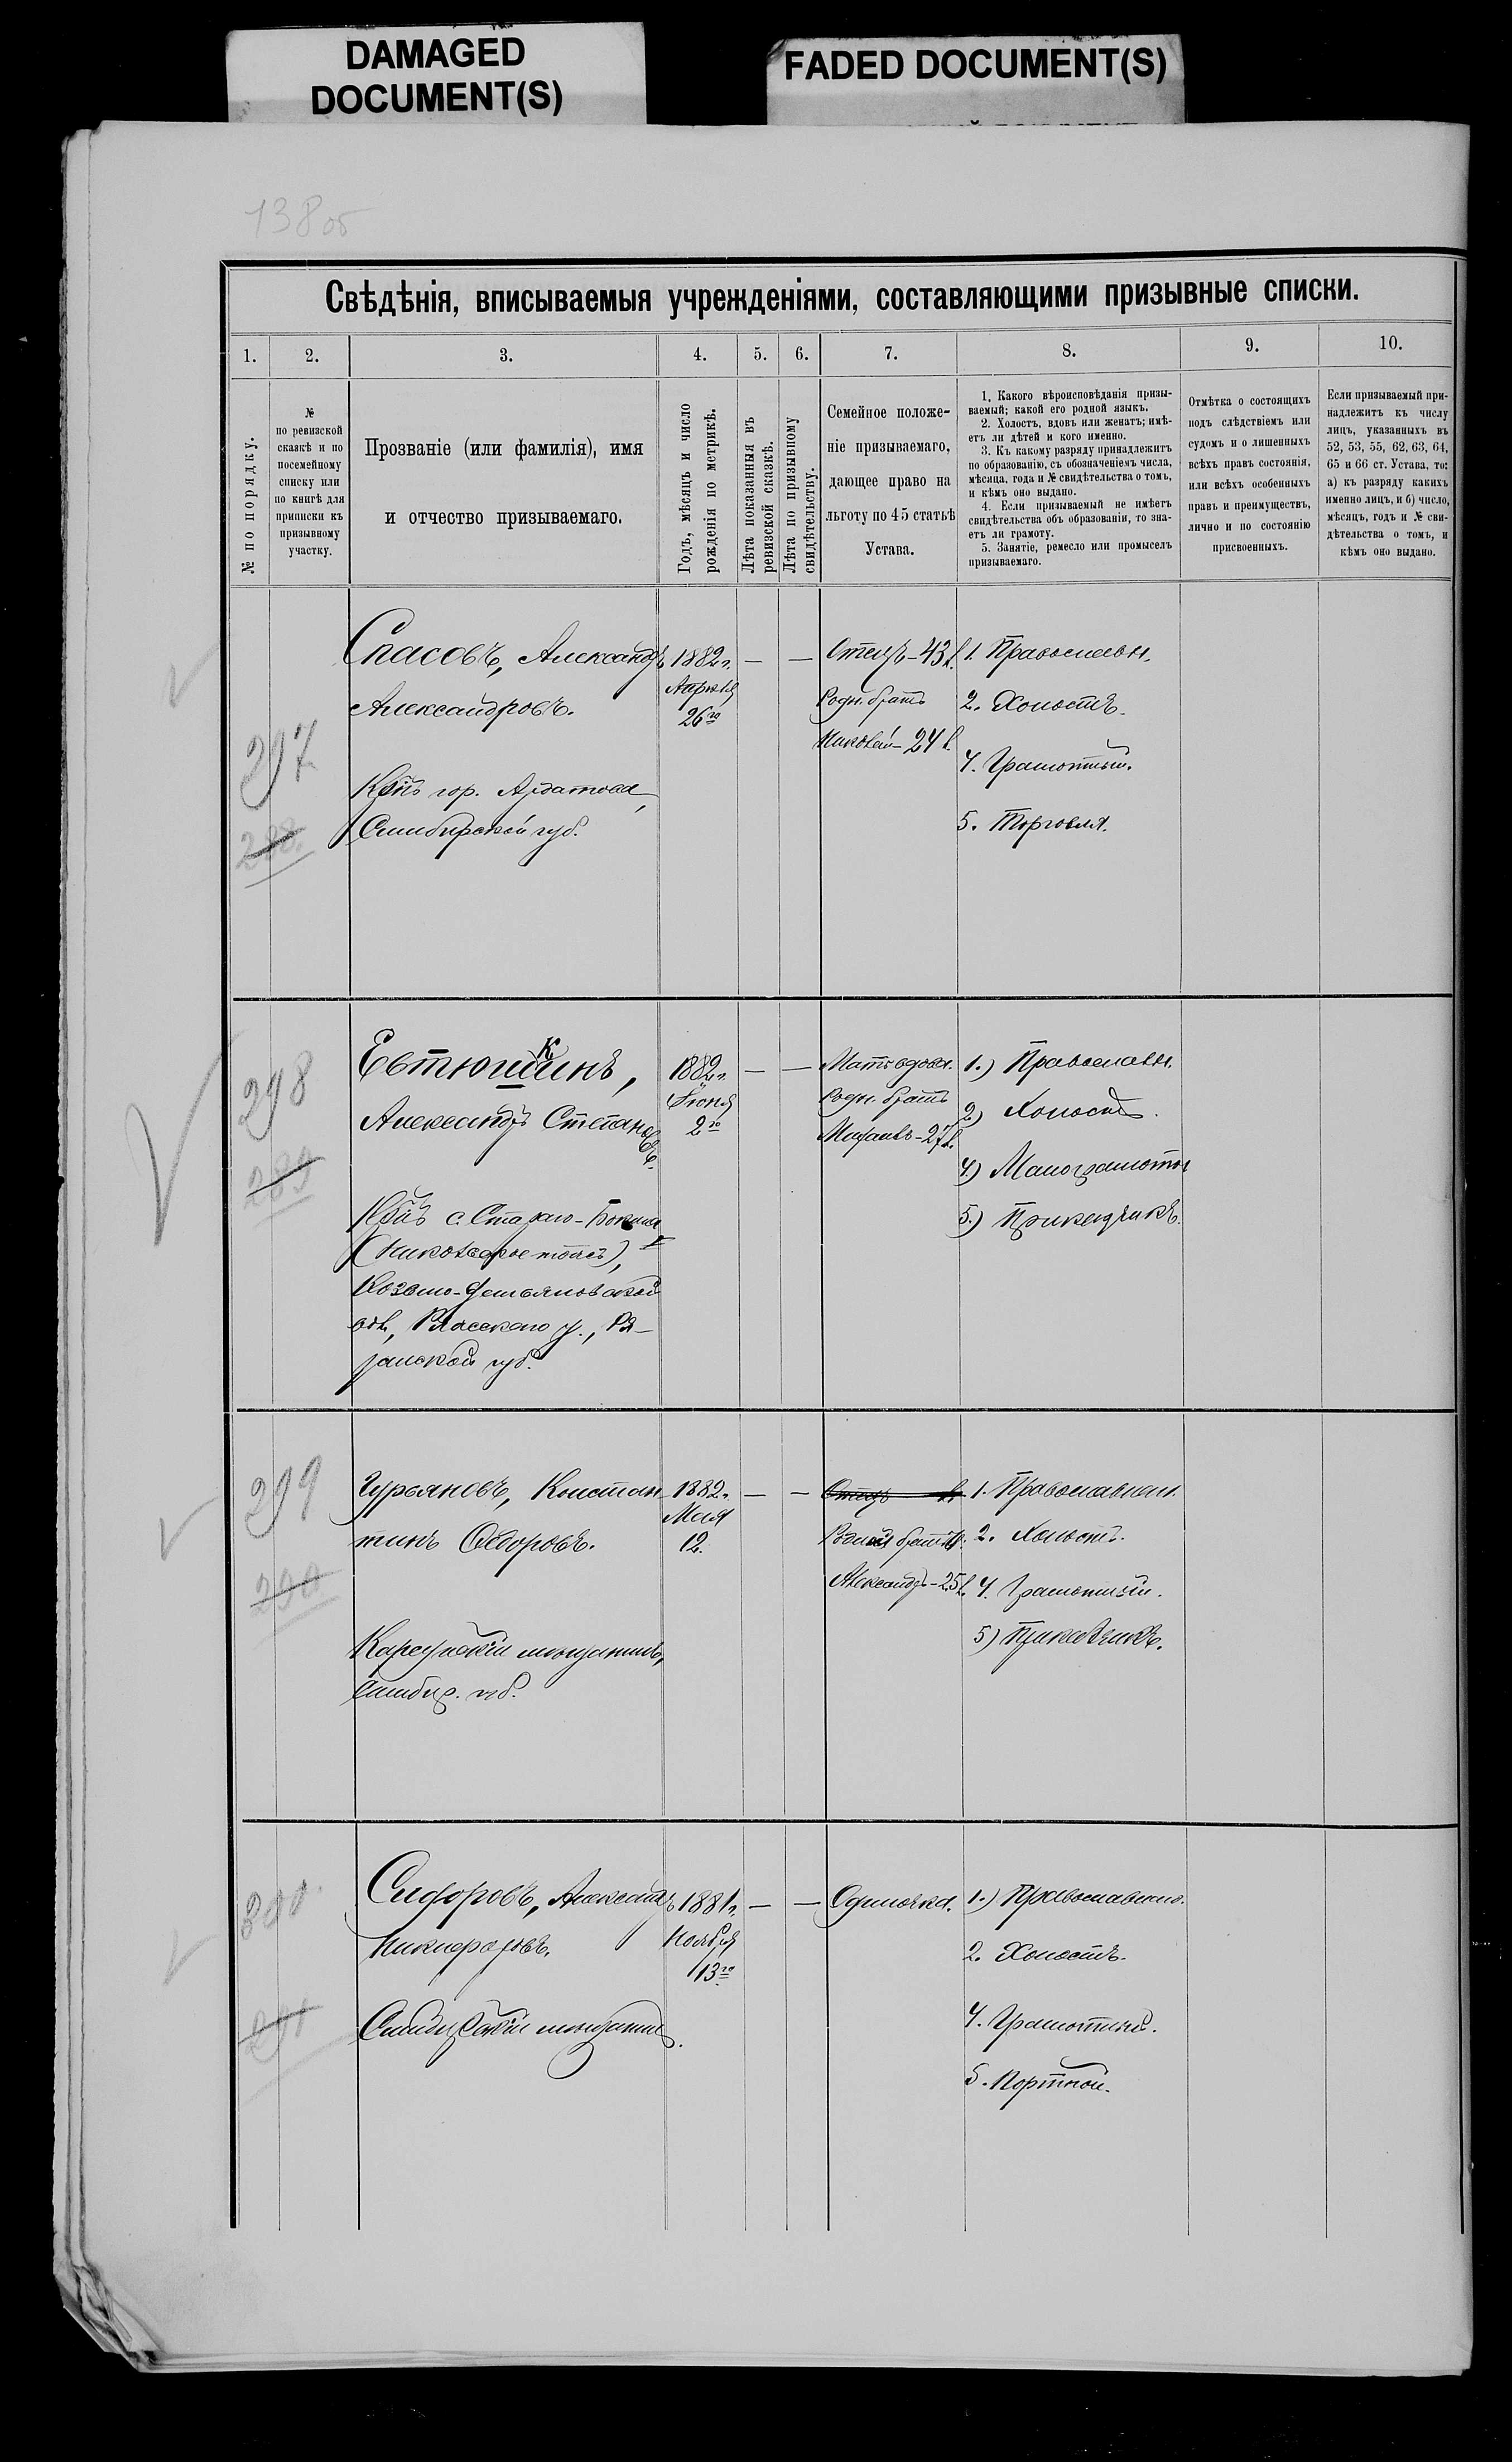 DAMAGED
DOCUMENT(S)
FADED DOCUMENT(S)
138 об
Свѣдѣнія, вписываемыя учрежденіями, составляющими призывные списки.
1. 2. 3. 4. 5. 6. 7. 8. 9. 10.
№ по порядку.
№
по ревизской
сказкѣ и по
посемейному
списку или
по книгѣ для
приписки къ
призывному
участку.
Прозваніе (или фамилія), имя
и отчество призываемаго.
Годъ, мѣсяцъ и число
рожденія по метрикѣ.
Лѣта показанныя въ
ревизской сказкѣ.
Лѣта по призывному
свидѣтельству.
Семейное положе-
ніе призываемаго,
дающее право на
льготу по 45 статьѣ
Устава.
1. Какого вѣроисповѣданія призы-
ваемый; какой его родной языкъ.
2. Холостъ, вдовъ или женатъ; имѣ-
етъ ли дѣтей и кого именно.
3. Къ какому разряду принадлежитъ
по образованію, съ обозначеніемъ числа,
мѣсяца, года и № свидѣтельства о томъ,
и кѣмъ оно выдано.
4. Если призываемый не имѣетъ
свидѣтельства объ образованіи, то зна-
етъ ли грамоту.
5. Занятіе, ремесло или промыселъ
призываемаго.
Отмѣтка о состоящихъ
подъ слѣдствіемъ или
судомъ и о лишенныхъ
всѣхъ правъ состоянія,
или всѣхъ особенныхъ
правъ и преимуществъ,
лично и по состоянію
присвоенныхъ.
Если призываемый при-
надлежитъ къ числу
лицъ, указанныхъ въ
52, 53, 55, 62, 63, 64,
65 и 66 ст. Устава, то:
а) къ разряду какихъ
именно лицъ, и б) число,
мѣсяцъ, годъ и № сви-
дѣтельства о томъ, и
кѣмъ оно выдано.
297
288.
Спасовъ, Александръ
Александровъ.
Кр-нъ гор. Ардатова,
Симбирской губ.
1882 г.
Апрѣля
26го
— —
Отецъ - 43 л.
Родн. братъ
Николай - 24 л.
1. Православн.
2. Холостъ.
4. Грамотный.
5. Торговля.
298
289
Евтюшкинъ,
Александръ Степановъ.
Кр-нъ с. Стараго-
Козьмо-Демьяновской
вол., Ряжскаго у., Ря-
занской губ.
1882 г.
Іюня
2го
— —
Мать вдова.
Родн. братъ
Михаилъ - 27 л.
1.) Православн.
2) Холостъ.
4.) Малограмотн
5.) Прикащикъ.
299
290
Гурьяновъ, Констан-
тинъ Ѳедоровъ.
Карсунскій мѣщанинъ,
Симбир. губ.
1882 г.
Мая
12.
— —
Отецъ л.
Родной братъ
Александръ - 25 л.
1. Православнаго.
2. Холостъ.
4. Грамотный.
5) Прикащикъ.
300
291
Сидоровъ, Александръ
Никифоровъ.
Симбирскій мѣщанинъ.
1881 г.
Ноября
13го
— —
Одиночка.
1.) Православнаго.
2. Холостъ.
4. Грамотный.
5. Портной.